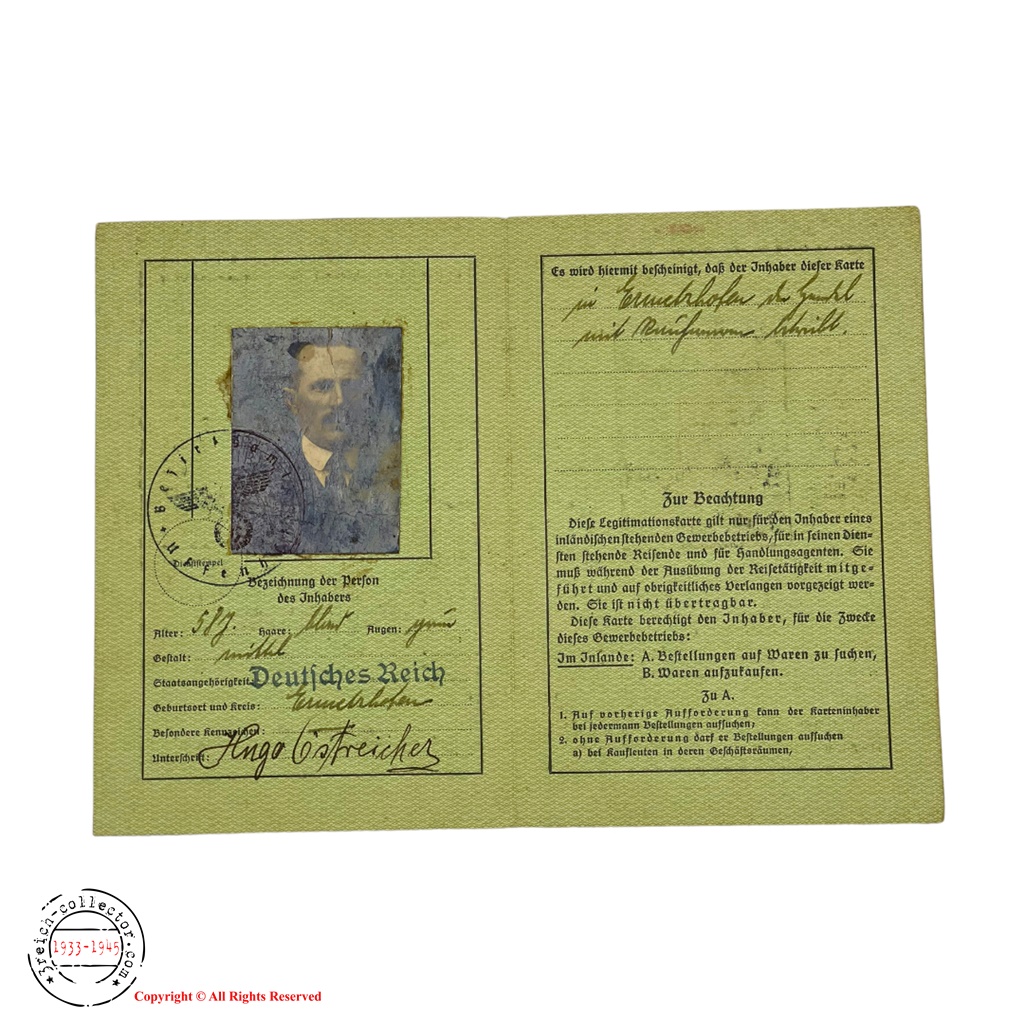 Bezirksamt Uffenheim
Dienststempel
Bezeichnung der Person
des Inhabers
Alter: 58 J. Haare: blond Augen: grün
Gestalt: mittel
Staatsangehörigkeit: Deutsches Reich
Geburtsort und Kreis: Ermetzhofen
Besondere Kennzeichen:
Unterschrift: Hugo Östreicher
Es wird hiermit bescheinigt, daß der Inhaber dieser Karte
in Ermetzhofen den Handel
mit betreibt.
Zur Beachtung
Diese Legitimationskarte gilt nur für den Inhaber eines
inländischen stehenden Gewerbebetriebs, für in seinen Dien-
sten stehende Reisende und für Handlungsagenten. Sie
muß während der Ausübung der Reisetätigkeit mitge-
führt und auf obrigkeitliches Verlangen vorgezeigt wer-
den. Sie ist nicht übertragbar.
Diese Karte berechtigt den Inhaber, für die Zwecke
dieses Gewerbebetriebs:
Im Inlande: A. Bestellungen auf Waren zu suchen,
B. Waren aufzukaufen.
Zu A.
1. Auf vorherige Aufforderung kann der Karteninhaber
bei jedermann Bestellungen aufsuchen;
2. ohne Aufforderung darf er Bestellungen aufsuchen
a) bei Kaufleuten in deren Geschäftsräumen,
3reich-collector.com
1933-1945
Copyright © All Rights Reserved